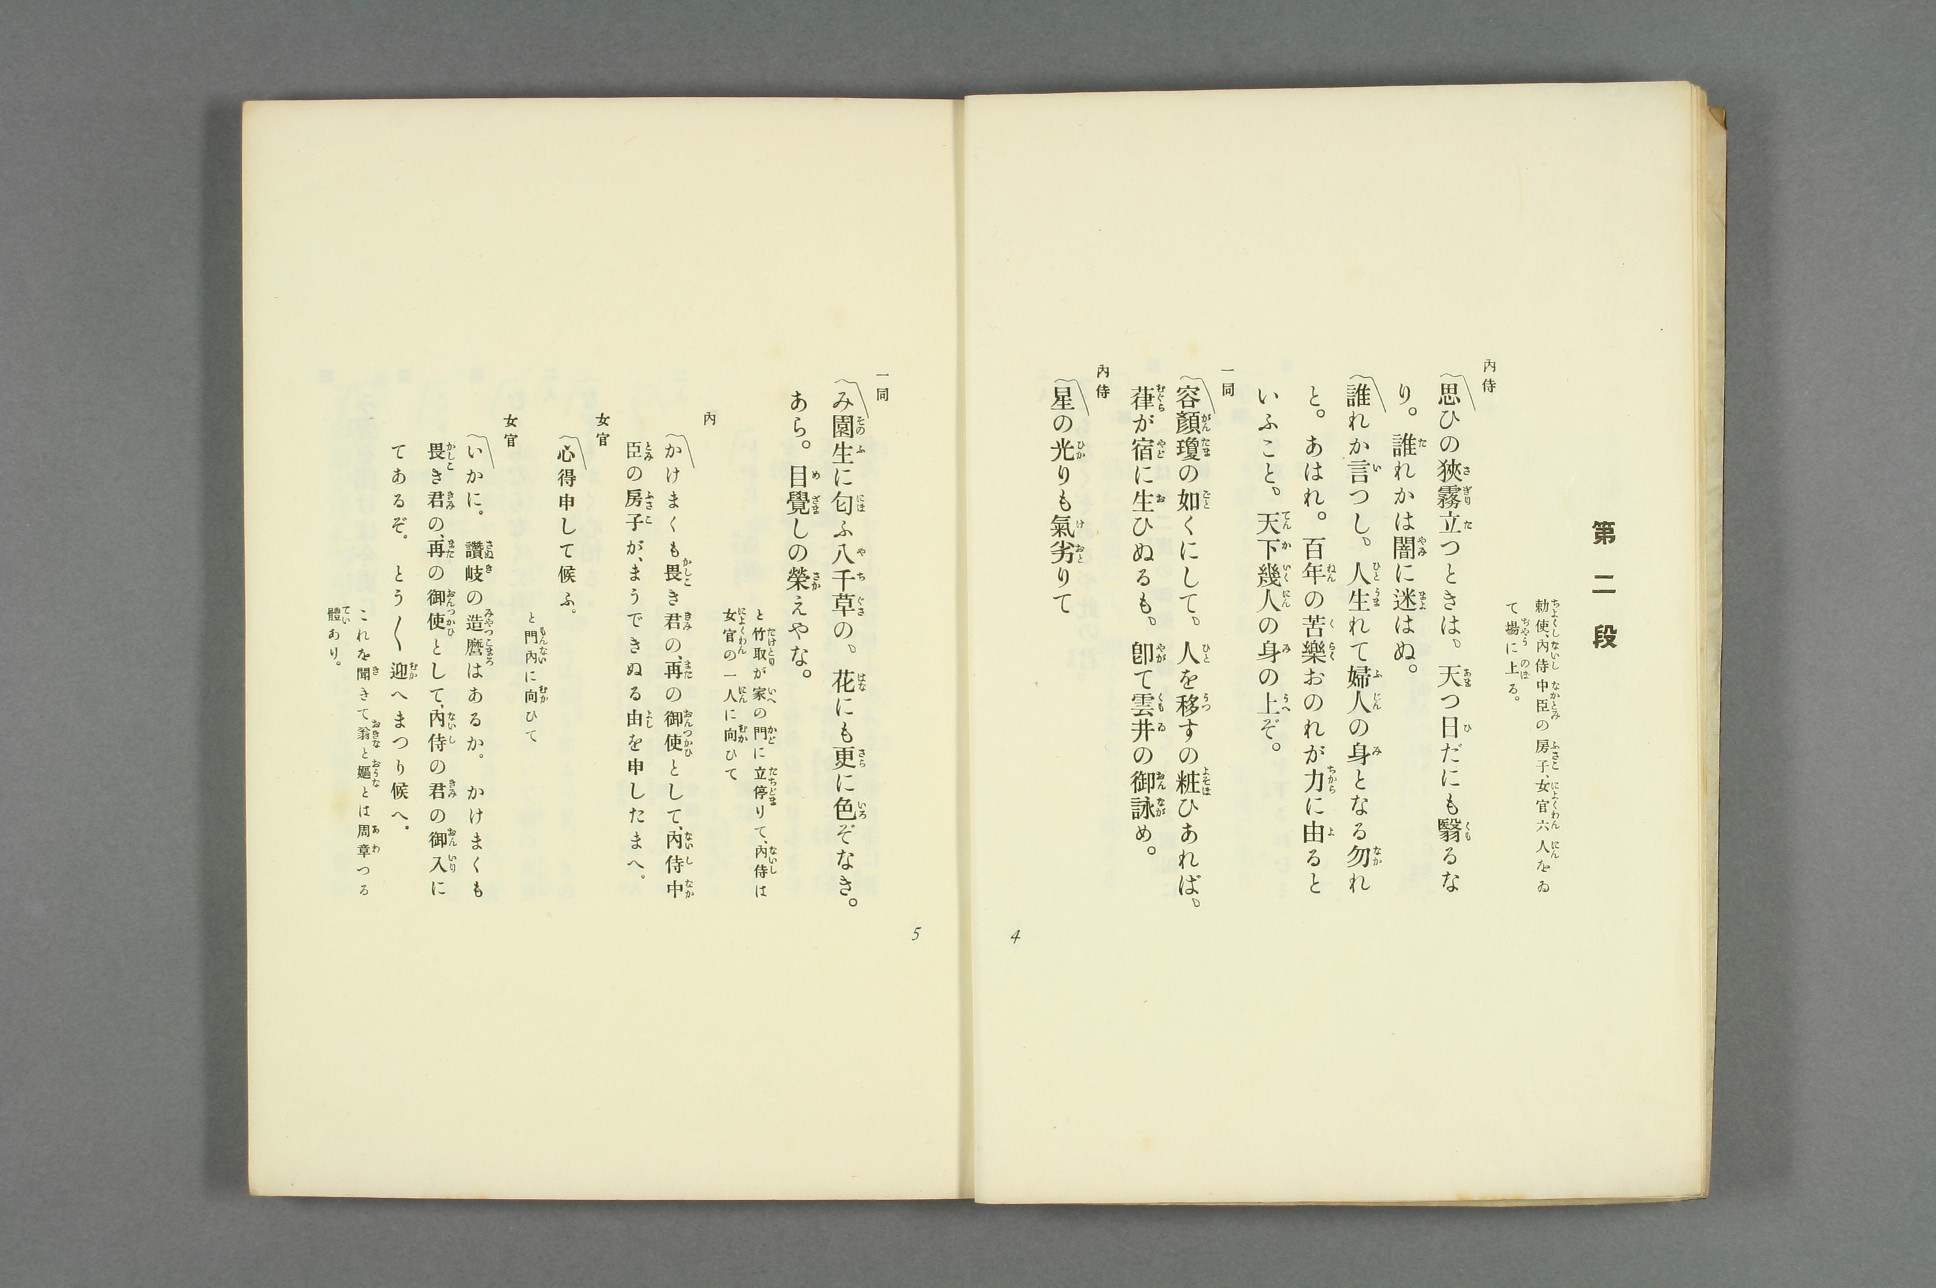 第二段
勅使、內侍中臣の房子、女官六人をゐ
て場に上る。
內侍
〽思ひの狹霧立つときは、天つ日だにも翳るな
り。誰れかは闇に迷はぬ。
〽誰れか言つし、人生れて婦人の身となる勿れ
と。あはれ。百年の苦樂おのれが力に由ると
いふこと。天下幾人の身の上ぞ。
一同
〽容顏瓊の如くにして、人を移すの粧ひあれば、
葎が宿に生ひぬるも、卽て雲井の御詠め。
內侍
〽星の光りも氣劣りて
4
一同
〽み園生に匂ふ八千草の、花にも更に色ぞなき。
あら。目覺しの榮えやな。
と竹取が家の門に立停りて、內侍は
女官の一人に向ひて
內
〽かけまくも畏き君の、再の御使として、內侍中
臣の房子が、まうできぬる由を申したまへ。
女官
〽心得申して候ふ。
と門內に向ひて
女官
〽いかに。讚岐の造麿はあるか。かけまくも
畏き君の、再の御使として、內侍の君の御入に
てあるぞ。とう〱迎へまつり候へ。
これを聞きて翁と嫗とは周章つる
體あり。
5